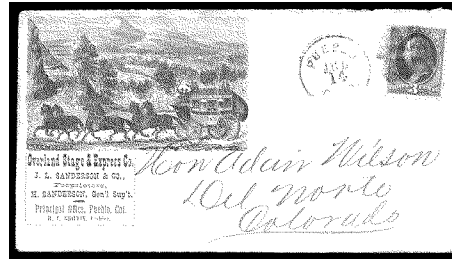 Overland Stage & Express Co.
J. L. SANDERSON & CO.,
Proprietors,
M. SANDERSON, Gen'l Sup't.
Principal Office, Pueblo, Col.
PUEBLO
14
3
Hon Adair Wilson
Del Norte
Colorado